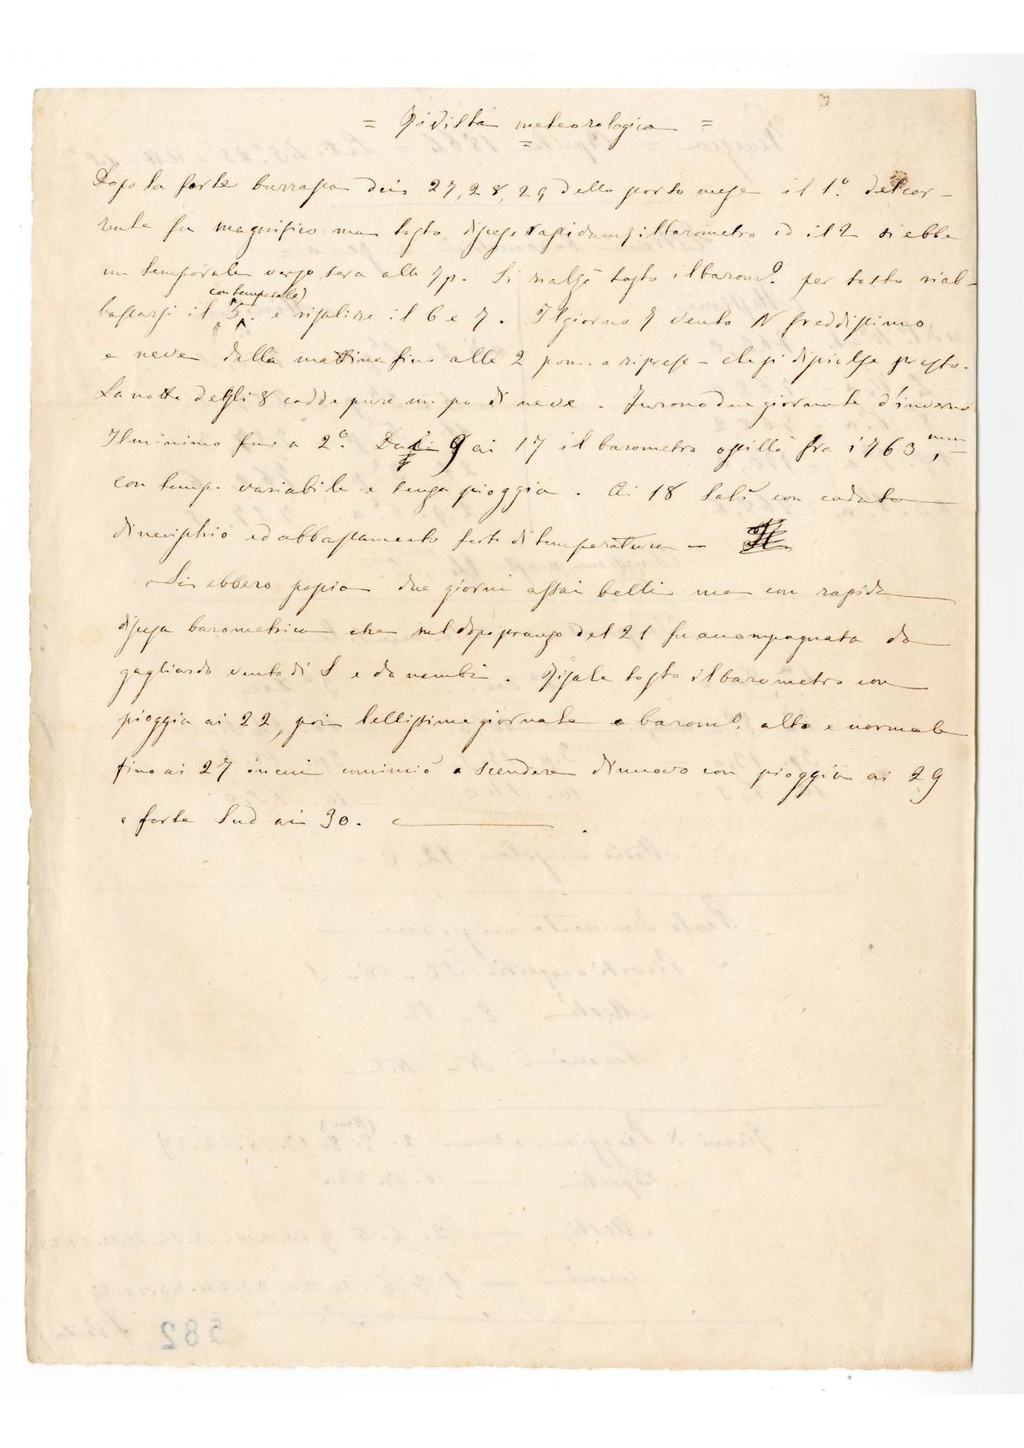 = Rivista meteorologica =
Dopo la forte burrasca dei 27, 28, 29 dello scorso mese il 1º. del cor-
rente fu magnifico ma tosto discese rapidam. il barometro ed il 2 si ebbe
un temporale verso sera alle 7p. Si rialzò tosto il barom.º per tosto rial-
con temporale)
bassarsi il 5. e risalire il 6 e 7. Il giorno 8 vento N freddissimo
e neve dalla mattina fino alle 2 pom. a riprese – che si disciolse presto.
La notte degli 8 cadde pure un po di neve. Furono due giornate d'inverno
Il minimo fu a 2º. Dai 9 ai 17 il barometro oscillò fra i 763,mm
con tempo variabile e senza pioggia. Ai 18 salì con caduta
di nevischio ed abbassamento forte di temperatura –
Si ebbero poscia due giorni assai belli ma con rapida
discesa barometrica che nel dopopranzo del 21 fu accompagnata da
gagliardo vento di S e da nembi. Risale tosto il barometro con
pioggia ai 22, poi bellissime giornate e barom.º alto e normale
fino ai 27 in cui cominciò a scendere di nuovo con pioggia ai 29
e forte Sud ai 30.
582